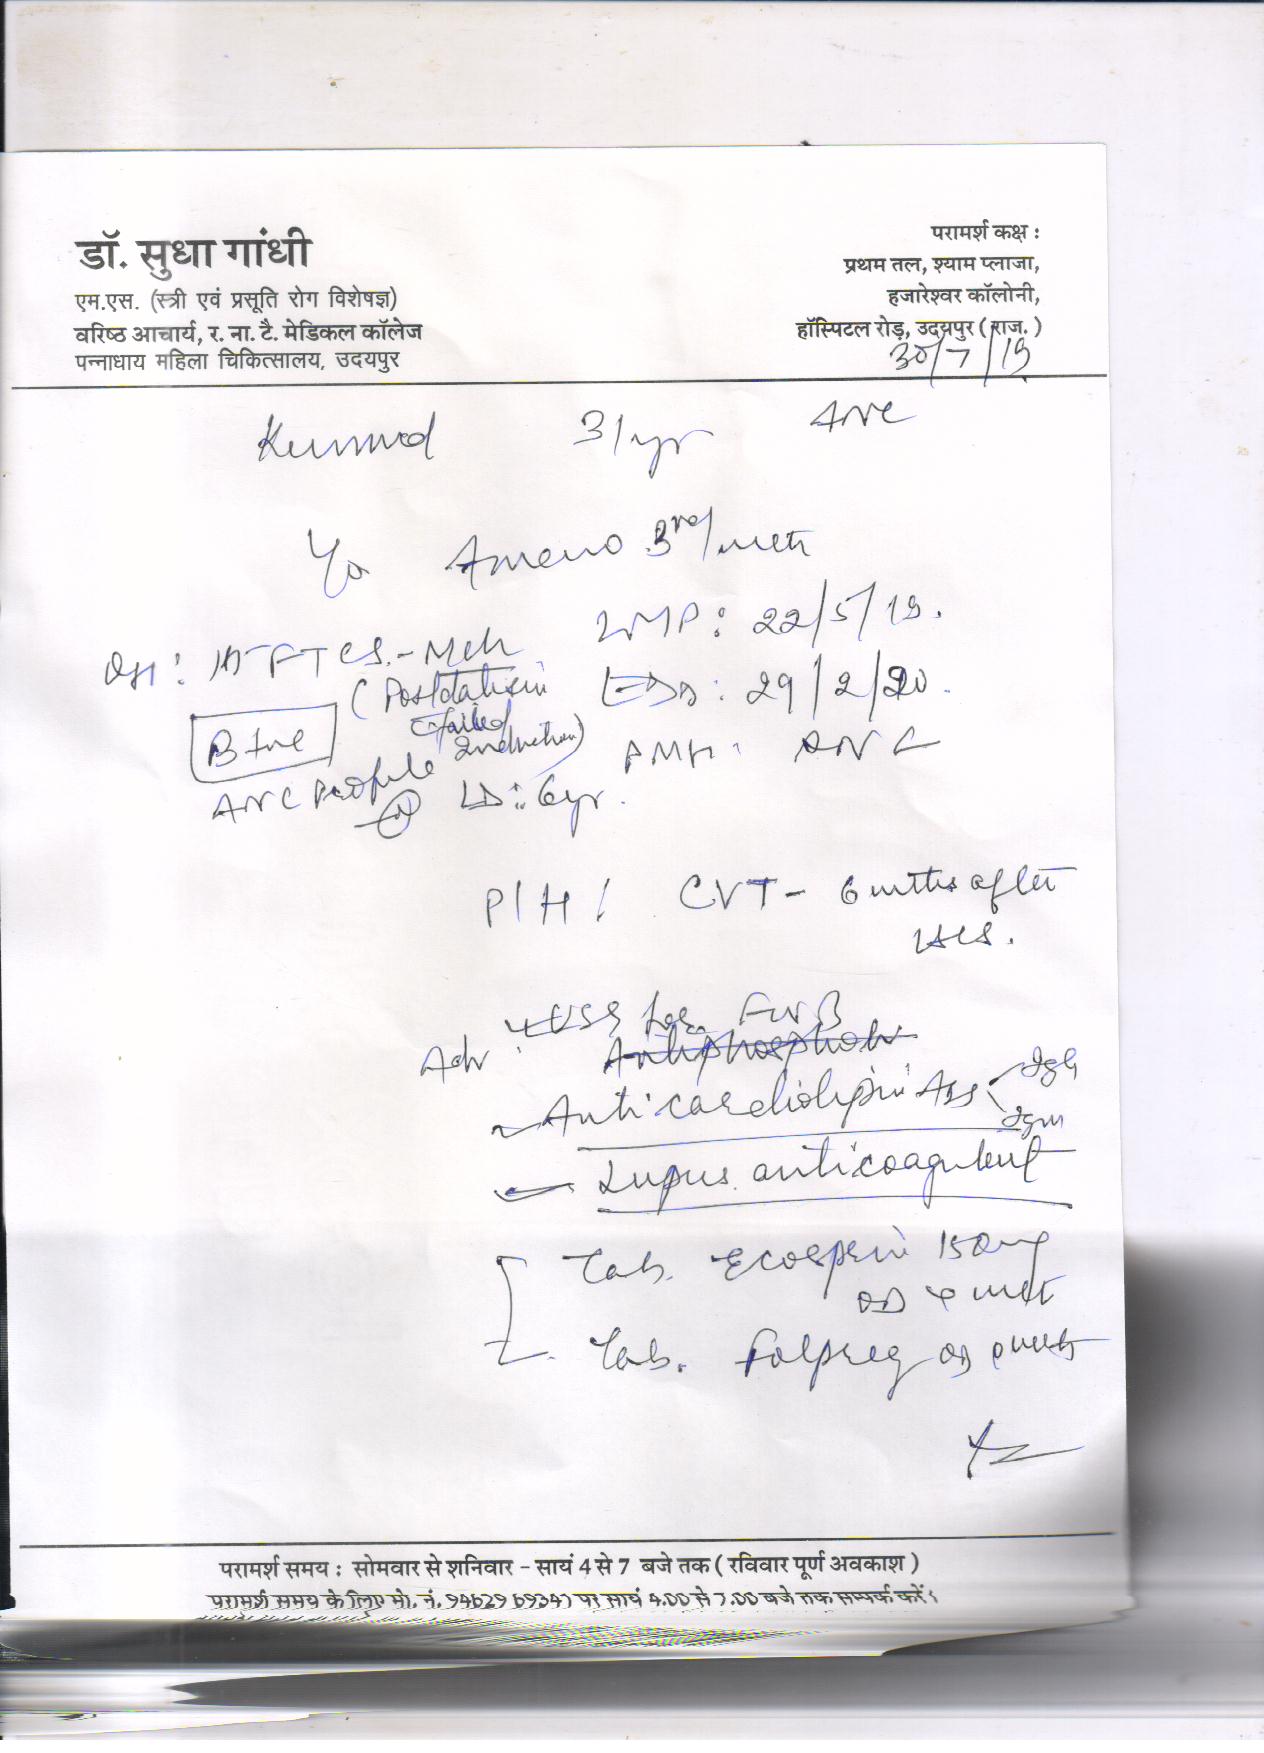 डॉ. सुधा गांधी
एम.एस. (स्त्री एवं प्रसूति रोग विशेषज्ञ)
वरिष्ठ आचार्य, र. ना. टै. मेडिकल कॉलेज
पन्नाधाय महिला चिकित्सालय, उदयपुर
परामर्श कक्ष :
प्रथम तल, श्याम प्लाजा,
हजारेश्वर कॉलोनी,
हॉस्पिटल रोड़, उदयपुर (राज.)
30/7/19
31yr ANC
Ameno 3rd/mth
LMP: 22/5/19.
EDD: 29/2/20.
PMH: RNC
OH: FTCS.-Mch
(Postdatism
failed
Induction)
B+ve
ANC Profile
N
LD: 6yr.
P/H/ CVT- 6 mths after
LSCS.
Adv: USG for FWB
Anticardiolipin Abs IgG
IgM
Lupus anticoagulent
Tab. Ecosprin 150mg
OD
Tab. Folpreg OD
परामर्श समय : सोमवार से शनिवार - सायं 4 से 7 बजे तक ( रविवार पूर्ण अवकाश )
परामर्श समय के लिए मो. नं. 94629 69347 पर सायं 4.00 से 7.00 बजे तक सम्पर्क करें।